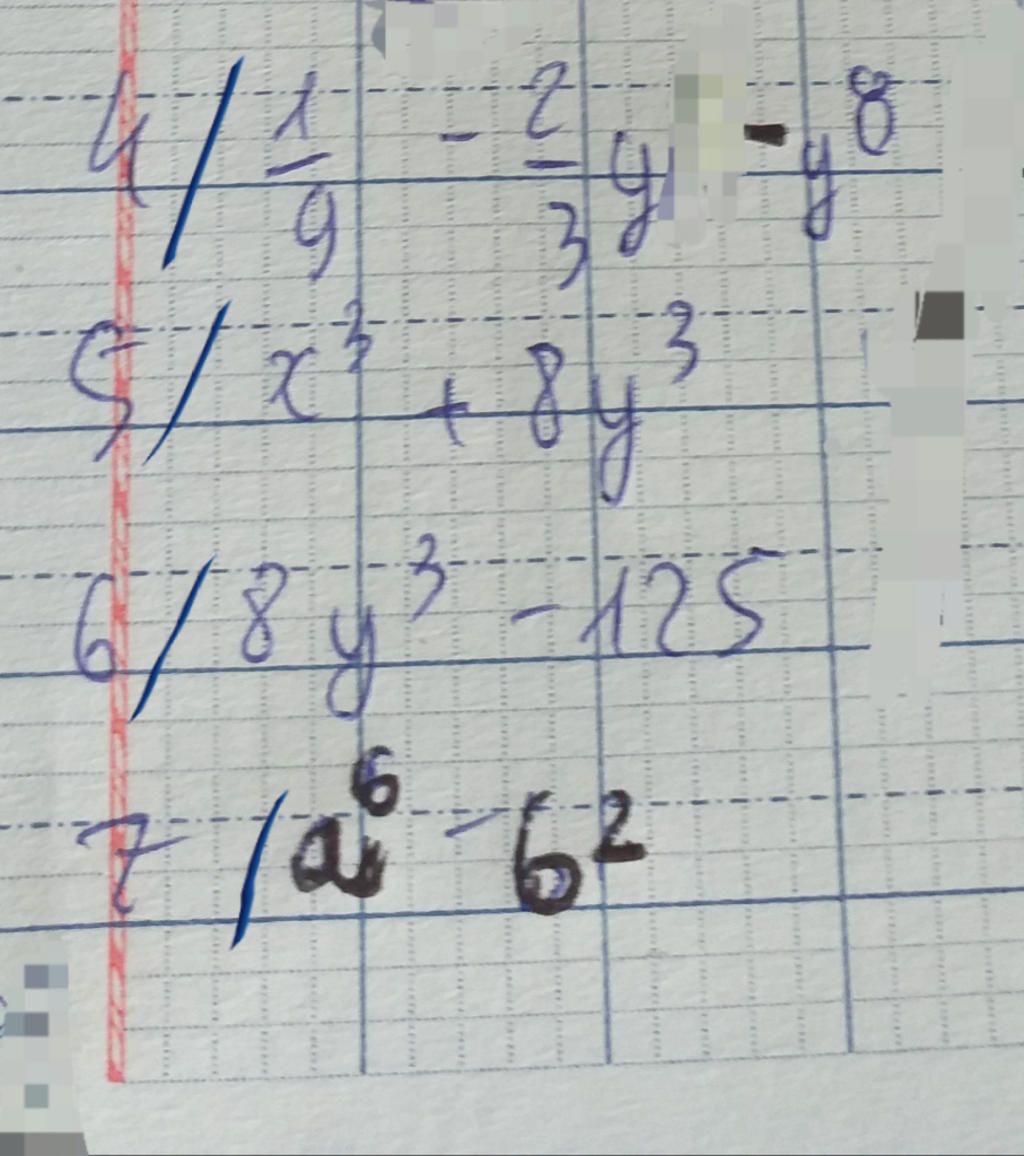 4/ 1/9 - 2/3 y - y⁸
5/ x³ + 8y³
6/ 8y³ - 125
7/ a⁶ - b²